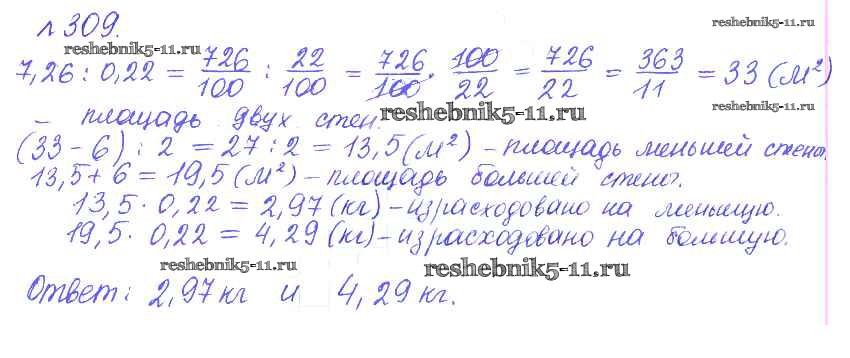 № 309.
reshebnik5-11.ru
reshebnik5-11.ru
7,26 : 0,22 = 726/100 : 22/100 = 726/100 · 100/22 = 726/22 = 363/11 = 33 (м²)
reshebnik5-11.ru
– площадь двух стен.
reshebnik5-11.ru
(33 – 6) : 2 = 27 : 2 = 13,5 (м²) – площадь меньшей стены.
13,5 + 6 = 19,5 (м²) – площадь большей стены.
13,5 · 0,22 = 2,97 (кг) – израсходовано на меньшую.
19,5 · 0,22 = 4,29 (кг) – израсходовано на большую.
reshebnik5-11.ru
reshebnik5-11.ru
Ответ: 2,97 кг и 4,29 кг.